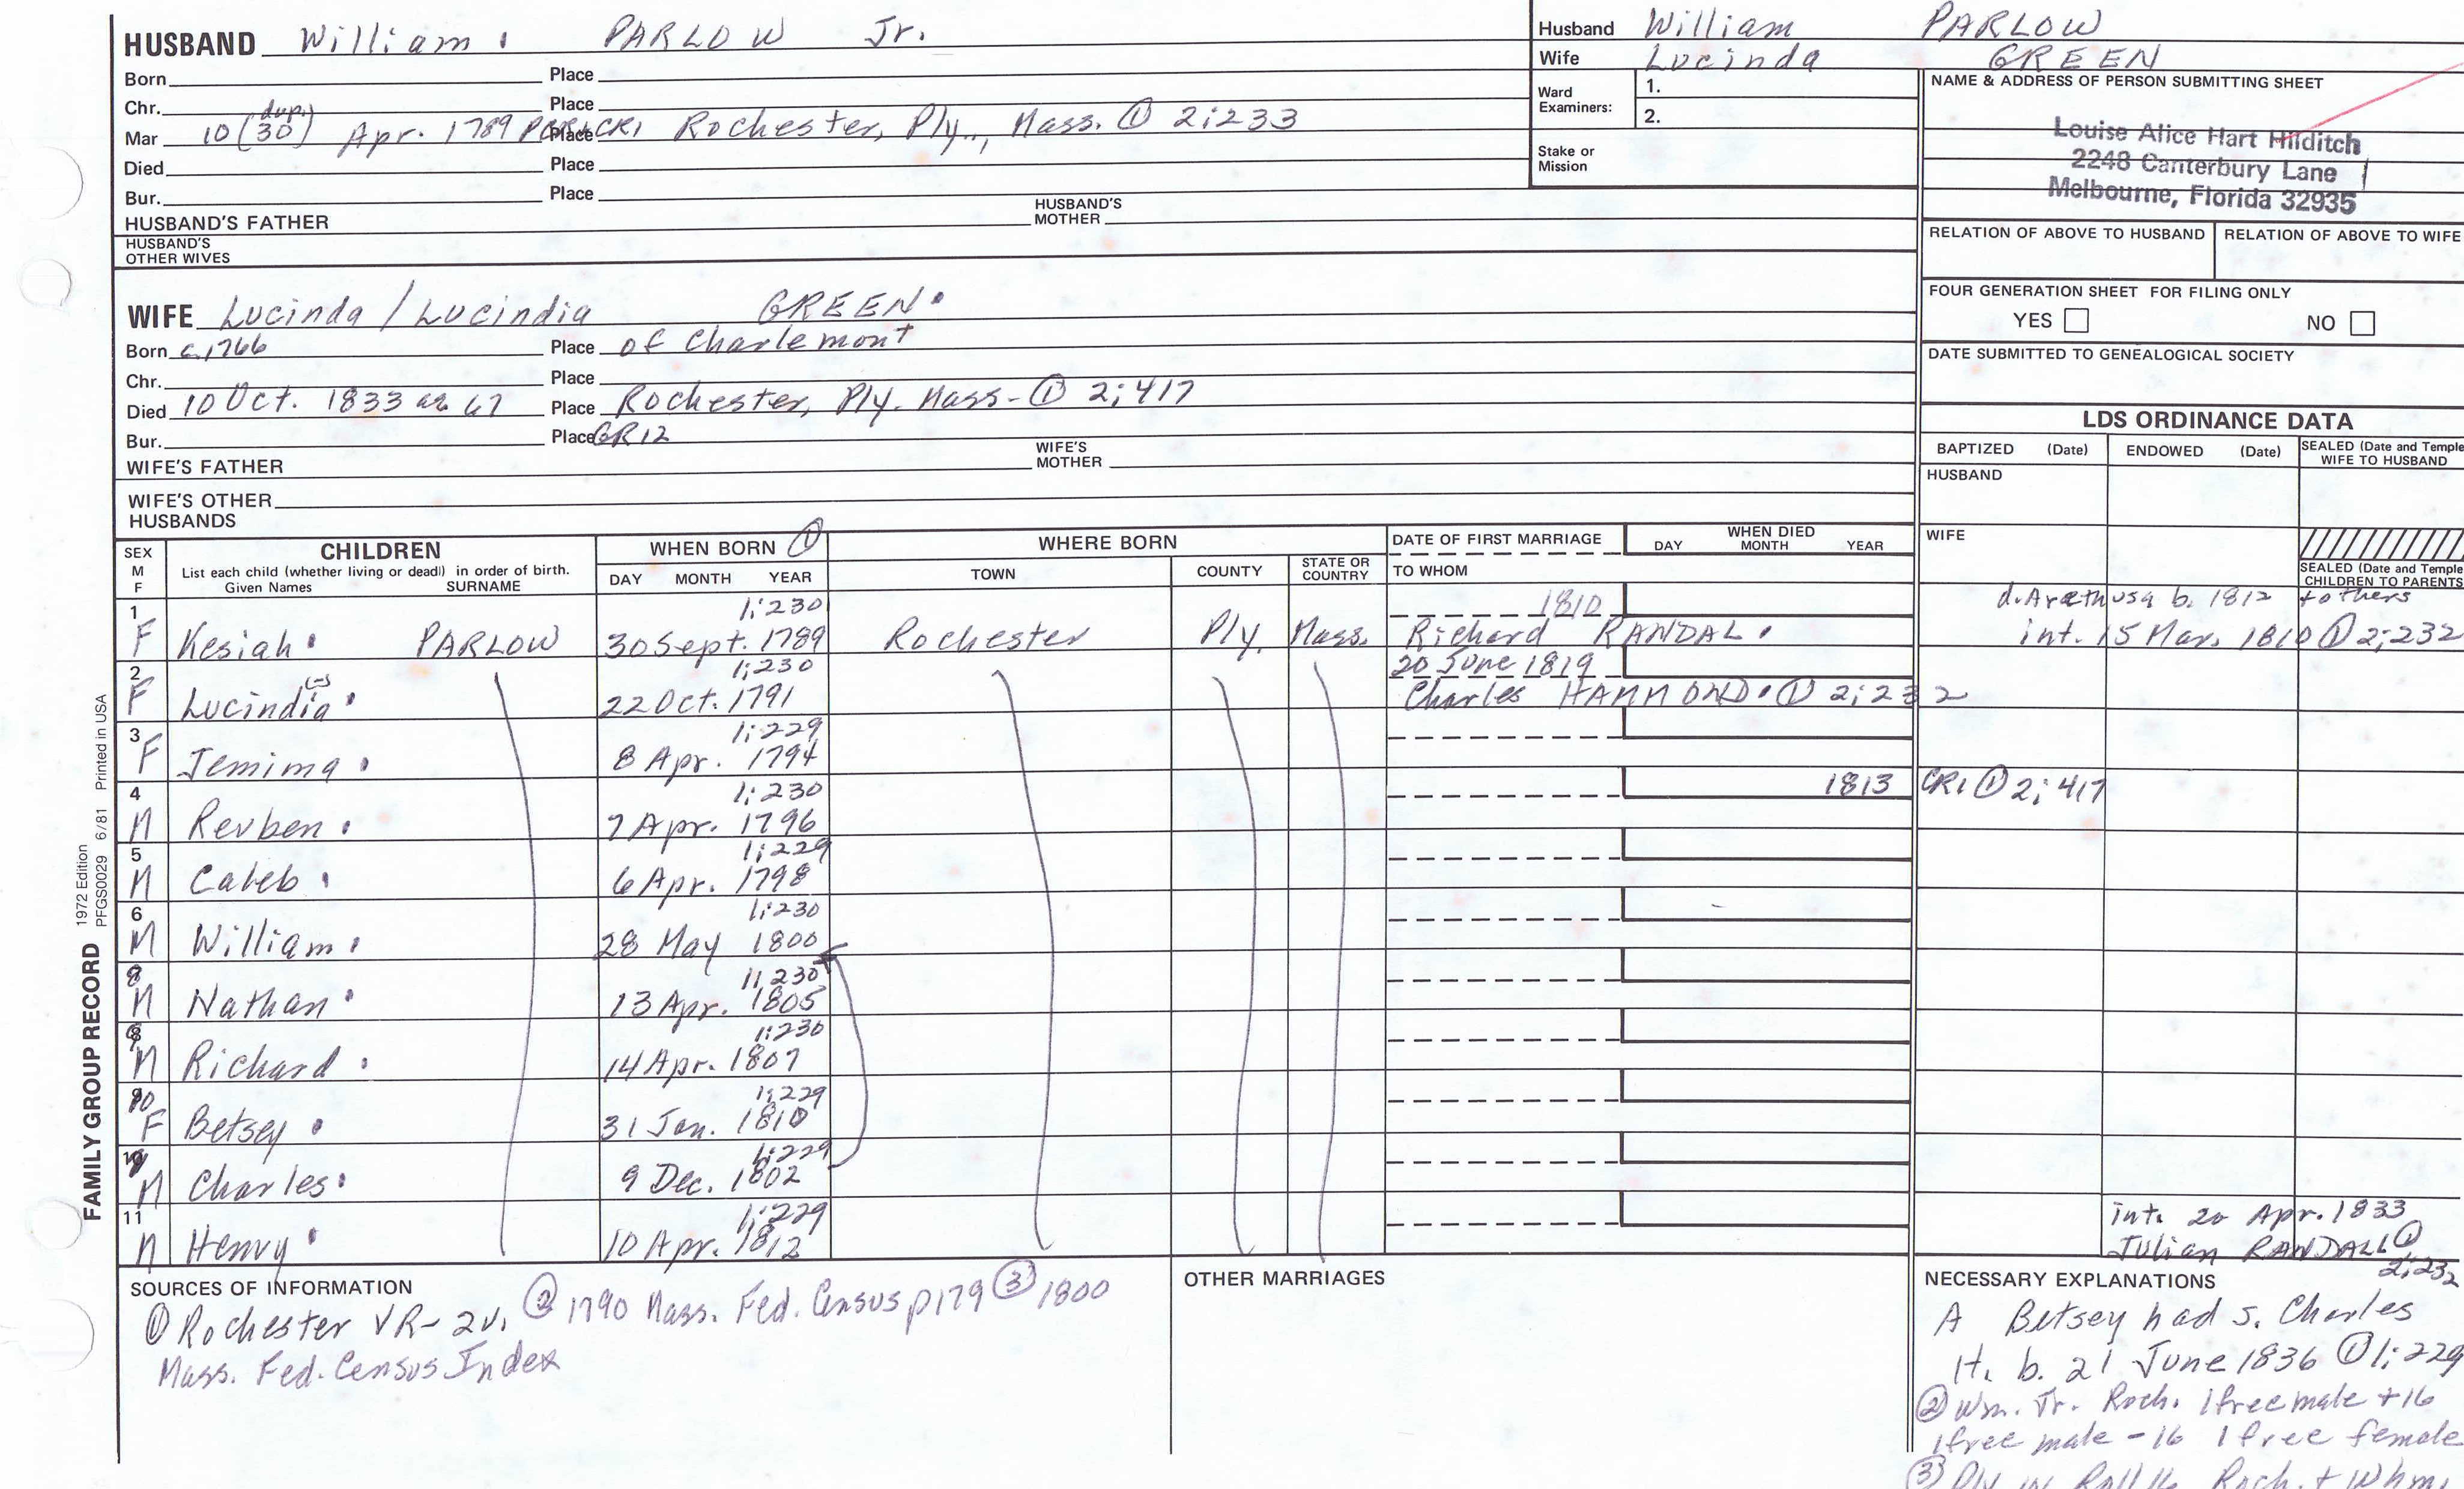 HUSBAND William PARLOW Jr.
Born Place
Chr. Place
Mar 10 (30) dup. Apr. 1789 Place CR1 Rochester, Ply., Mass. ① 2:233
Died Place
Bur. Place
HUSBAND'S FATHER HUSBAND'S MOTHER
HUSBAND'S OTHER WIVES
Husband William PARLOW
Wife Lucinda GREEN
Ward Examiners: 1.
2.
Stake or Mission
NAME & ADDRESS OF PERSON SUBMITTING SHEET
Louise Alice Hart Hilditch
2248 Canterbury Lane
Melbourne, Florida 32935
RELATION OF ABOVE TO HUSBAND RELATION OF ABOVE TO WIFE
FOUR GENERATION SHEET FOR FILING ONLY
YES NO
DATE SUBMITTED TO GENEALOGICAL SOCIETY
WIFE Lucinda / Lucindia GREEN
Born c.1766 Place of Charlemont
Chr. Place
Died 10 Oct. 1833 ae 67 Place Rochester, Ply. Mass. ① 2:417
Bur. Place GR12
WIFE'S FATHER WIFE'S MOTHER
WIFE'S OTHER HUSBANDS
LDS ORDINANCE DATA
BAPTIZED (Date) ENDOWED (Date) SEALED (Date and Temple) WIFE TO HUSBAND
HUSBAND
WIFE
SEALED (Date and Temple) CHILDREN TO PARENTS
SEX M F CHILDREN WHEN BORN ① WHERE BORN DATE OF FIRST MARRIAGE WHEN DIED
List each child (whether living or dead) in order of birth.
Given Names SURNAME DAY MONTH YEAR TOWN COUNTY STATE OR COUNTRY TO WHOM DAY MONTH YEAR
1 1:230 1810 d. Arethusa b. 1812 + others
F Kesiah PARLOW 30 Sept. 1789 Rochester Ply. Mass. Richard RANDAL int. 15 Mar. 1810 ① 2:232
2 1:230 20 June 1819
F Lucindia (-) 22 Oct. 1791 Charles HAMMOND ① 2:232
3 1:229
F Jemima 8 Apr. 1794
4 1:230 1813 CR1 ① 2:417
M Reuben 7 Apr. 1796
5 1:229
M Caleb 6 Apr. 1798
6 1:230
M William 28 May 1800
8 1:230
M Nathan 13 Apr. 1805
1:230
M Richard 14 Apr. 1807
10 1:229
F Betsey 31 Jan. 1810
1:229
M Charles 9 Dec. 1802
11 1:229 int. 20 Apr. 1833
M Henry 10 Apr. 1812 Julian RANDALL ① 2:232
SOURCES OF INFORMATION
① Rochester VR- 2v. ② 1790 Mass. Fed. Census p179 ③ 1800
Mass. Fed. Census Index
OTHER MARRIAGES
NECESSARY EXPLANATIONS
A Betsey had s. Charles
H. b. 21 June 1836 ① 1:229
② Wm. Jr. Roch. 1 free male +16
1 free male -16 1 free female
③ Roll 16 Roch.
FAMILY GROUP RECORD 1972 Edition
PFGS0029 6/81 Printed in USA